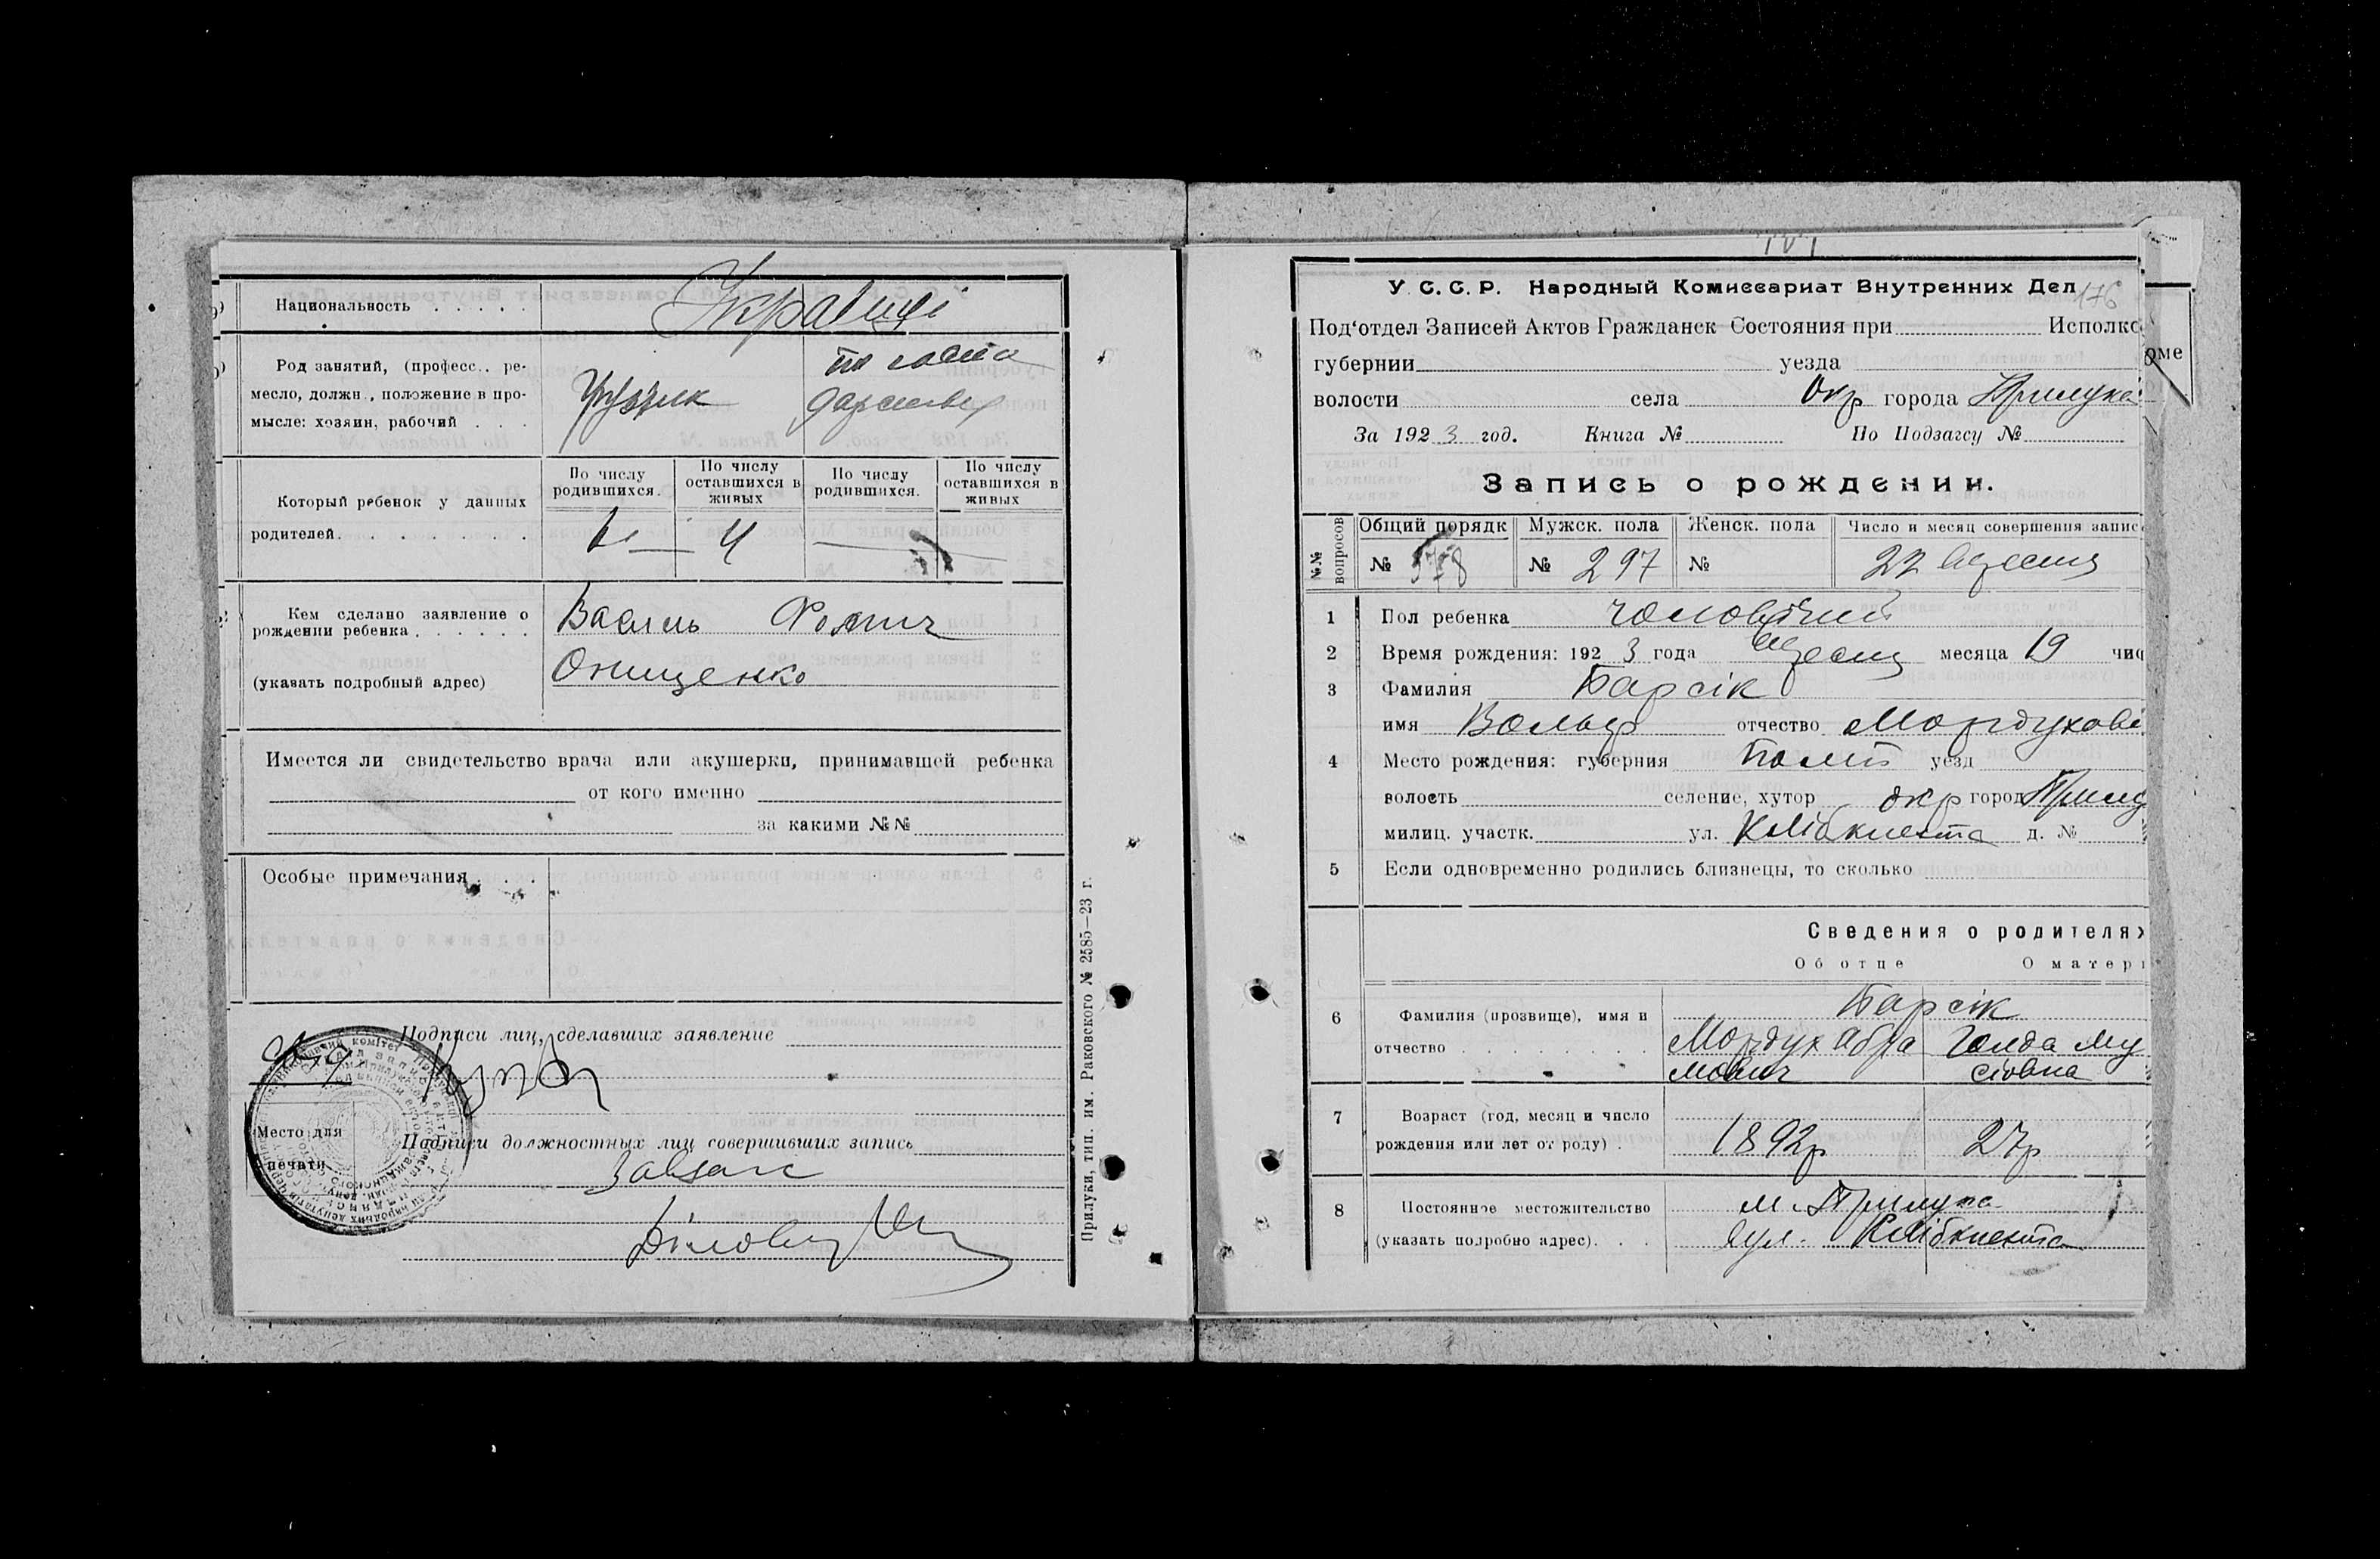 Национальность . . . . . Українці
Род занятий, (професс.. ре-
месло, должн., положение в про-
мысле: хозяин, рабочий . . .
Который ребенок у данных
родителей. . . . . . . .
По числу родившихся.
По числу оставшихся в живых
По числу родившихся.
По числу оставшихся в живых
4
Кем сделано заявление о
рождении ребенка . . . . . .
(указать подробный адрес)
Василь
Онищенко
Имеется ли свидетельство врача или акушерки, принимавшей ребенка
от кого именно
за какими №№
Особые примечания . . .
Подписи лиц, сделавших заявление
Место для
печати
Подписи должностных лиц совершивших запись
Завзагс
Прилуки, тип. им. Раковского № 2585—23 г.
176
У. С. С. Р. Народный Комиссариат Внутренних Дел
Под‘отдел Записей Актов Гражданск Состояния при Исполко
оме
губернии уезда
волости села окр города Прилука
За 1923 год. Книга № По Подзагсу №
Запись о рождении.
№№ вопросов
Общий порядк Мужск. пола Женск. пола Число и месяц совершения запис
№ 578 № 297 № 22 вересня
1 Пол ребенка чоловічий
2 Время рождения: 1923 года вересня месяца 19 чис
3 Фамилия Барсік
имя Вольф отчество Мордухові
4 Место рождения: губерния Полт уезд
волость селение, хутор окр город Прилу
милиц. участк. ул. д. №
5 Если одновременно родились близнецы, то сколько
Сведения о родителях
Об отце О матери
6 Фамилия (прозвище), имя и
отчество . . . . . . . .
Барсік
Мордух Абра Голда Му
мович сіовна
7 Возраст (год, месяц и число
рождения или лет от роду) .
1892р 27р
8 Постоянное местожительство
(указать подробно адрес). . .
м. Прилука
вул.